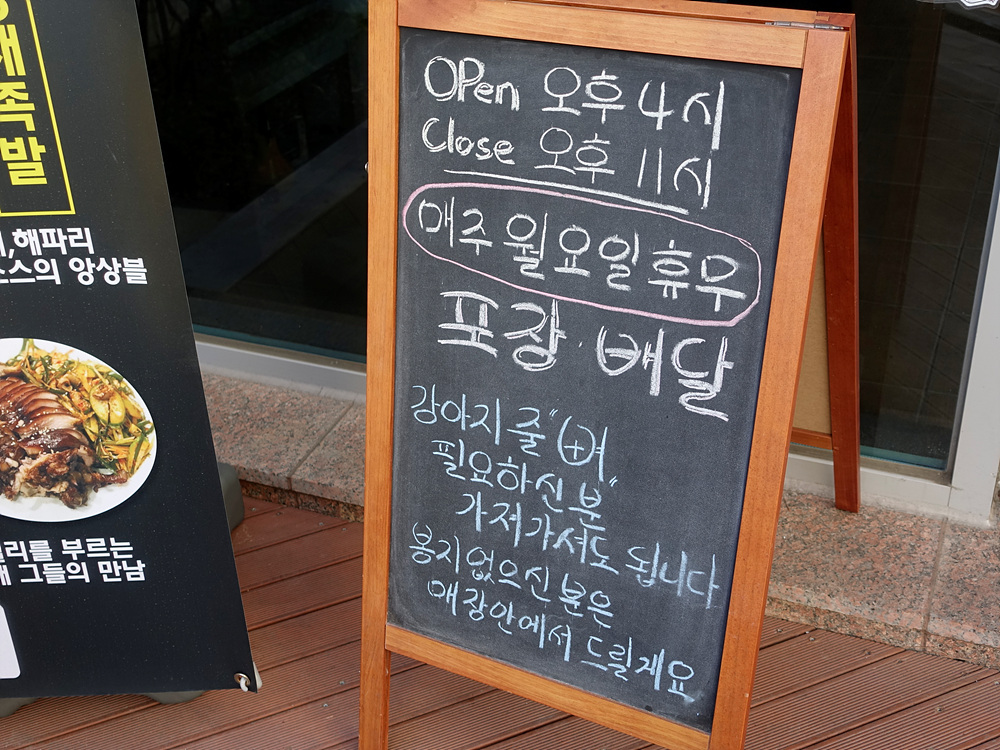 족발
해파리
스의 앙상블
부르는
그들의 만남
OPen 오후 4시
Close 오후 11시
매주 월요일 휴무
포장 · 배달
강아지 줄 "뼈
필요하신 분"
가져가셔도 됩니다
봉지 없으신 분은
매장안에서 드릴게요